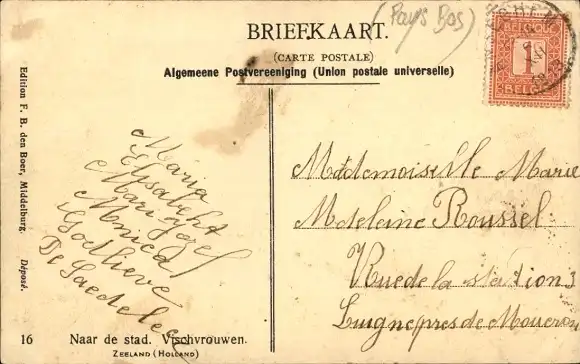 BRIEFKAART.
(Pays Bas)
(CARTE POSTALE)
Algemeene Postvereeniging (Union postale universelle)
BELGIQUE
1
BELGIË
Edition F. B. den Boer, Middelburg. Déposé.
Maria
Elisabeth
Marie
Monica
Godlieve
De Saedeleer
Mademoiselle Marie
Madeleine Roussel
Rue de la station 3
Luigne pres de Moucron
16 Naar de stad. Vischvrouwen.
ZEELAND (HOLLAND)